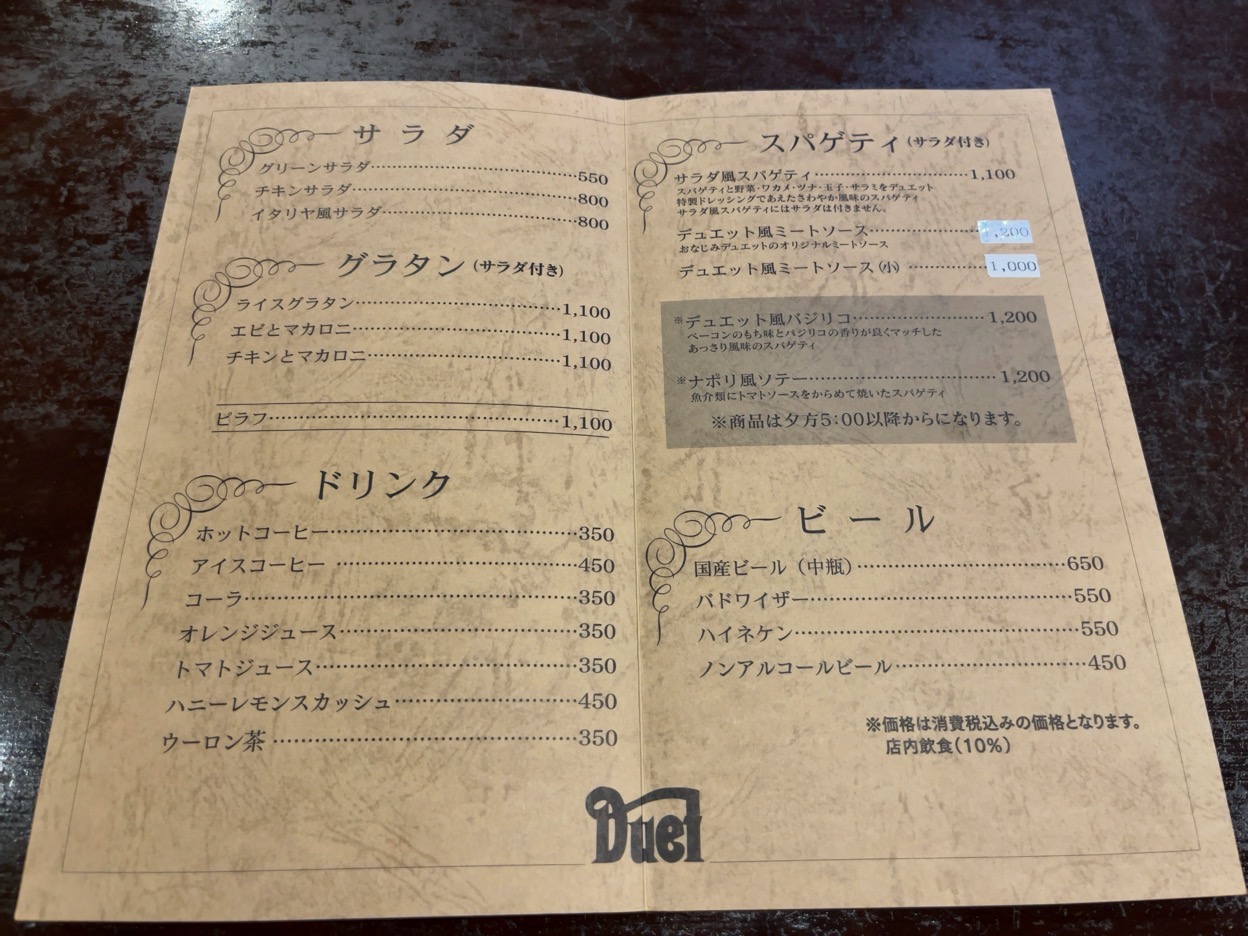 サラダ
グリーンサラダ……………………550
チキンサラダ……………………800
イタリヤ風サラダ……………………800
グラタン(サラダ付き)
ライスグラタン……………………1,100
エビとマカロニ……………………1,100
チキンとマカロニ……………………1,100
ピラフ……………………1,100
ドリンク
ホットコーヒー……………………350
アイスコーヒー……………………450
コーラ……………………350
オレンジジュース……………………350
トマトジュース……………………350
ハニーレモンスカッシュ……………………450
ウーロン茶……………………350
スパゲティ(サラダ付き)
サラダ風スパゲティ……………………1,100
スパゲティと野菜・ワカメ・ツナ・玉子・サラミをデュエット
特製ドレッシングであえたさわやか風味のスパゲティ
サラダ風スパゲティにはサラダは付きません。
デュエット風ミートソース……………………1,200
おなじみデュエットのオリジナルミートソース
デュエット風ミートソース(小)……………………1,000
※デュエット風バジリコ……………………1,200
ベーコンのもち味とバジリコの香りが良くマッチした
あっさり風味のスパゲティ
※ナポリ風ソテー……………………1,200
魚介類にトマトソースをからめて焼いたスパゲティ
※商品は夕方5:00以降からになります。
ビール
国産ビール(中瓶)……………………650
バドワイザー……………………550
ハイネケン……………………550
ノンアルコールビール……………………450
※価格は消費税込みの価格となります。
店内飲食(10%)
Duet